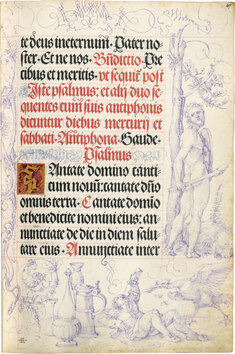 te deus in eternum. Pater no-
ster. Et ne nos. Bndittio. Pre
cibus et meritis. vt sequit post
Iste psalmus: et alij duo se
quentes cum suis antiphonis
dicuntur diebus mercurij et
sabbati. Antiphona. Gaude.
Psalmus
Cantate domino canti
cum nouum: cantate dño
omnis terra. Cantate domio
et benedicite nomini eius: an-
nunctiate de die in diem salu
tare eius. Annunctiate inter